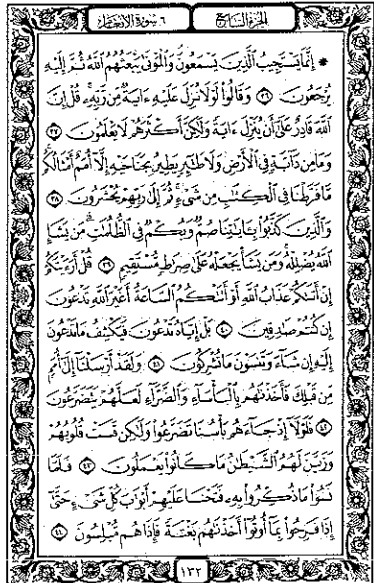 الجزء السابع
٦ سورة الأنعام
* إِنَّمَا يَسْتَجِيبُ الَّذِينَ يَسْمَعُونَ وَالْمَوْتَى يَبْعَثُهُمُ اللَّهُ ثُمَّ إِلَيْهِ
يُرْجَعُونَ ٣٦ وَقَالُوا لَوْلَا نُزِّلَ عَلَيْهِ ءَايَةٌ مِّن رَّبِّهِ قُلْ إِنَّ
اللَّهَ قَادِرٌ عَلَى أَن يُنَزِّلَ ءَايَةً وَلَكِنَّ أَكْثَرَهُمْ لَا يَعْلَمُونَ ٣٧
وَمَا مِن دَآبَّةٍ فِي الْأَرْضِ وَلَا طَائِرٍ يَطِيرُ بِجَنَاحَيْهِ إِلَّا أُمَمٌ أَمْثَالُكُم
مَّا فَرَّطْنَا فِي الْكِتَابِ مِن شَيْءٍ ثُمَّ إِلَى رَبِّهِمْ يُحْشَرُونَ ٣٨
وَالَّذِينَ كَذَّبُوا بِـَٔايَاتِنَا صُمٌّ وَبُكْمٌ فِي الظُّلُمَاتِ مَن يَشَإِ
اللَّهُ يُضْلِلْهُ وَمَن يَشَأْ يَجْعَلْهُ عَلَى صِرَاطٍ مُّسْتَقِيمٍ ٣٩ قُلْ أَرَءَيْتَكُمْ
إِنْ أَتَاكُمْ عَذَابُ اللَّهِ أَوْ أَتَتْكُمُ السَّاعَةُ أَغَيْرَ اللَّهِ تَدْعُونَ
إِن كُنتُمْ صَادِقِينَ ٤٠ بَلْ إِيَّاهُ تَدْعُونَ فَيَكْشِفُ مَا تَدْعُونَ
إِلَيْهِ إِن شَآءَ وَتَنسَوْنَ مَا تُشْرِكُونَ ٤١ وَلَقَدْ أَرْسَلْنَا إِلَى أُمَمٍ
مِّن قَبْلِكَ فَأَخَذْنَاهُم بِالْبَأْسَآءِ وَالضَّرَّآءِ لَعَلَّهُمْ يَتَضَرَّعُونَ
٤٢ فَلَوْلَا إِذْ جَآءَهُم بَأْسُنَا تَضَرَّعُوا وَلَكِن قَسَتْ قُلُوبُهُمْ
وَزَيَّنَ لَهُمُ الشَّيْطَانُ مَا كَانُوا يَعْمَلُونَ ٤٣ فَلَمَّا
نَسُوا مَا ذُكِّرُوا بِهِ فَتَحْنَا عَلَيْهِمْ أَبْوَابَ كُلِّ شَيْءٍ حَتَّى
إِذَا فَرِحُوا بِمَا أُوتُوا أَخَذْنَاهُم بَغْتَةً فَإِذَا هُم مُّبْلِسُونَ ٤٤
١٣٢